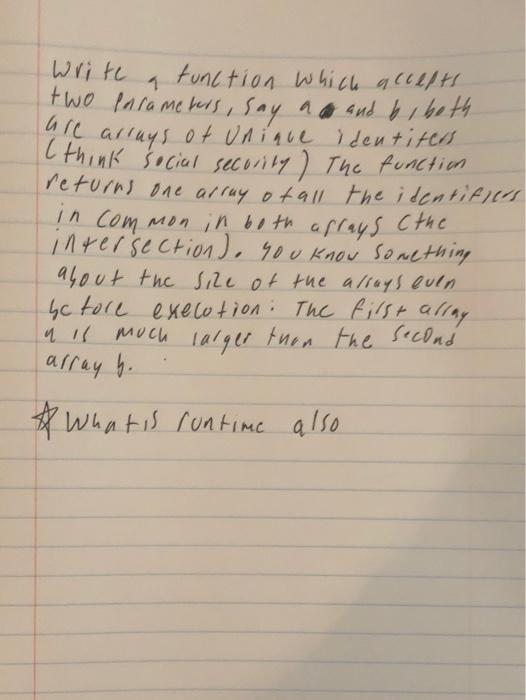 Write a function which accepts
two parameters, say a and b, both
are arrays of unique identifers
(think social security) The function
returns one array of all the identifiers
in common in both arrays (the
intersection). you know something
about the size of the arrays even
before execution: The first array
a is much larger than the second
array b.
☆ What is runtime also